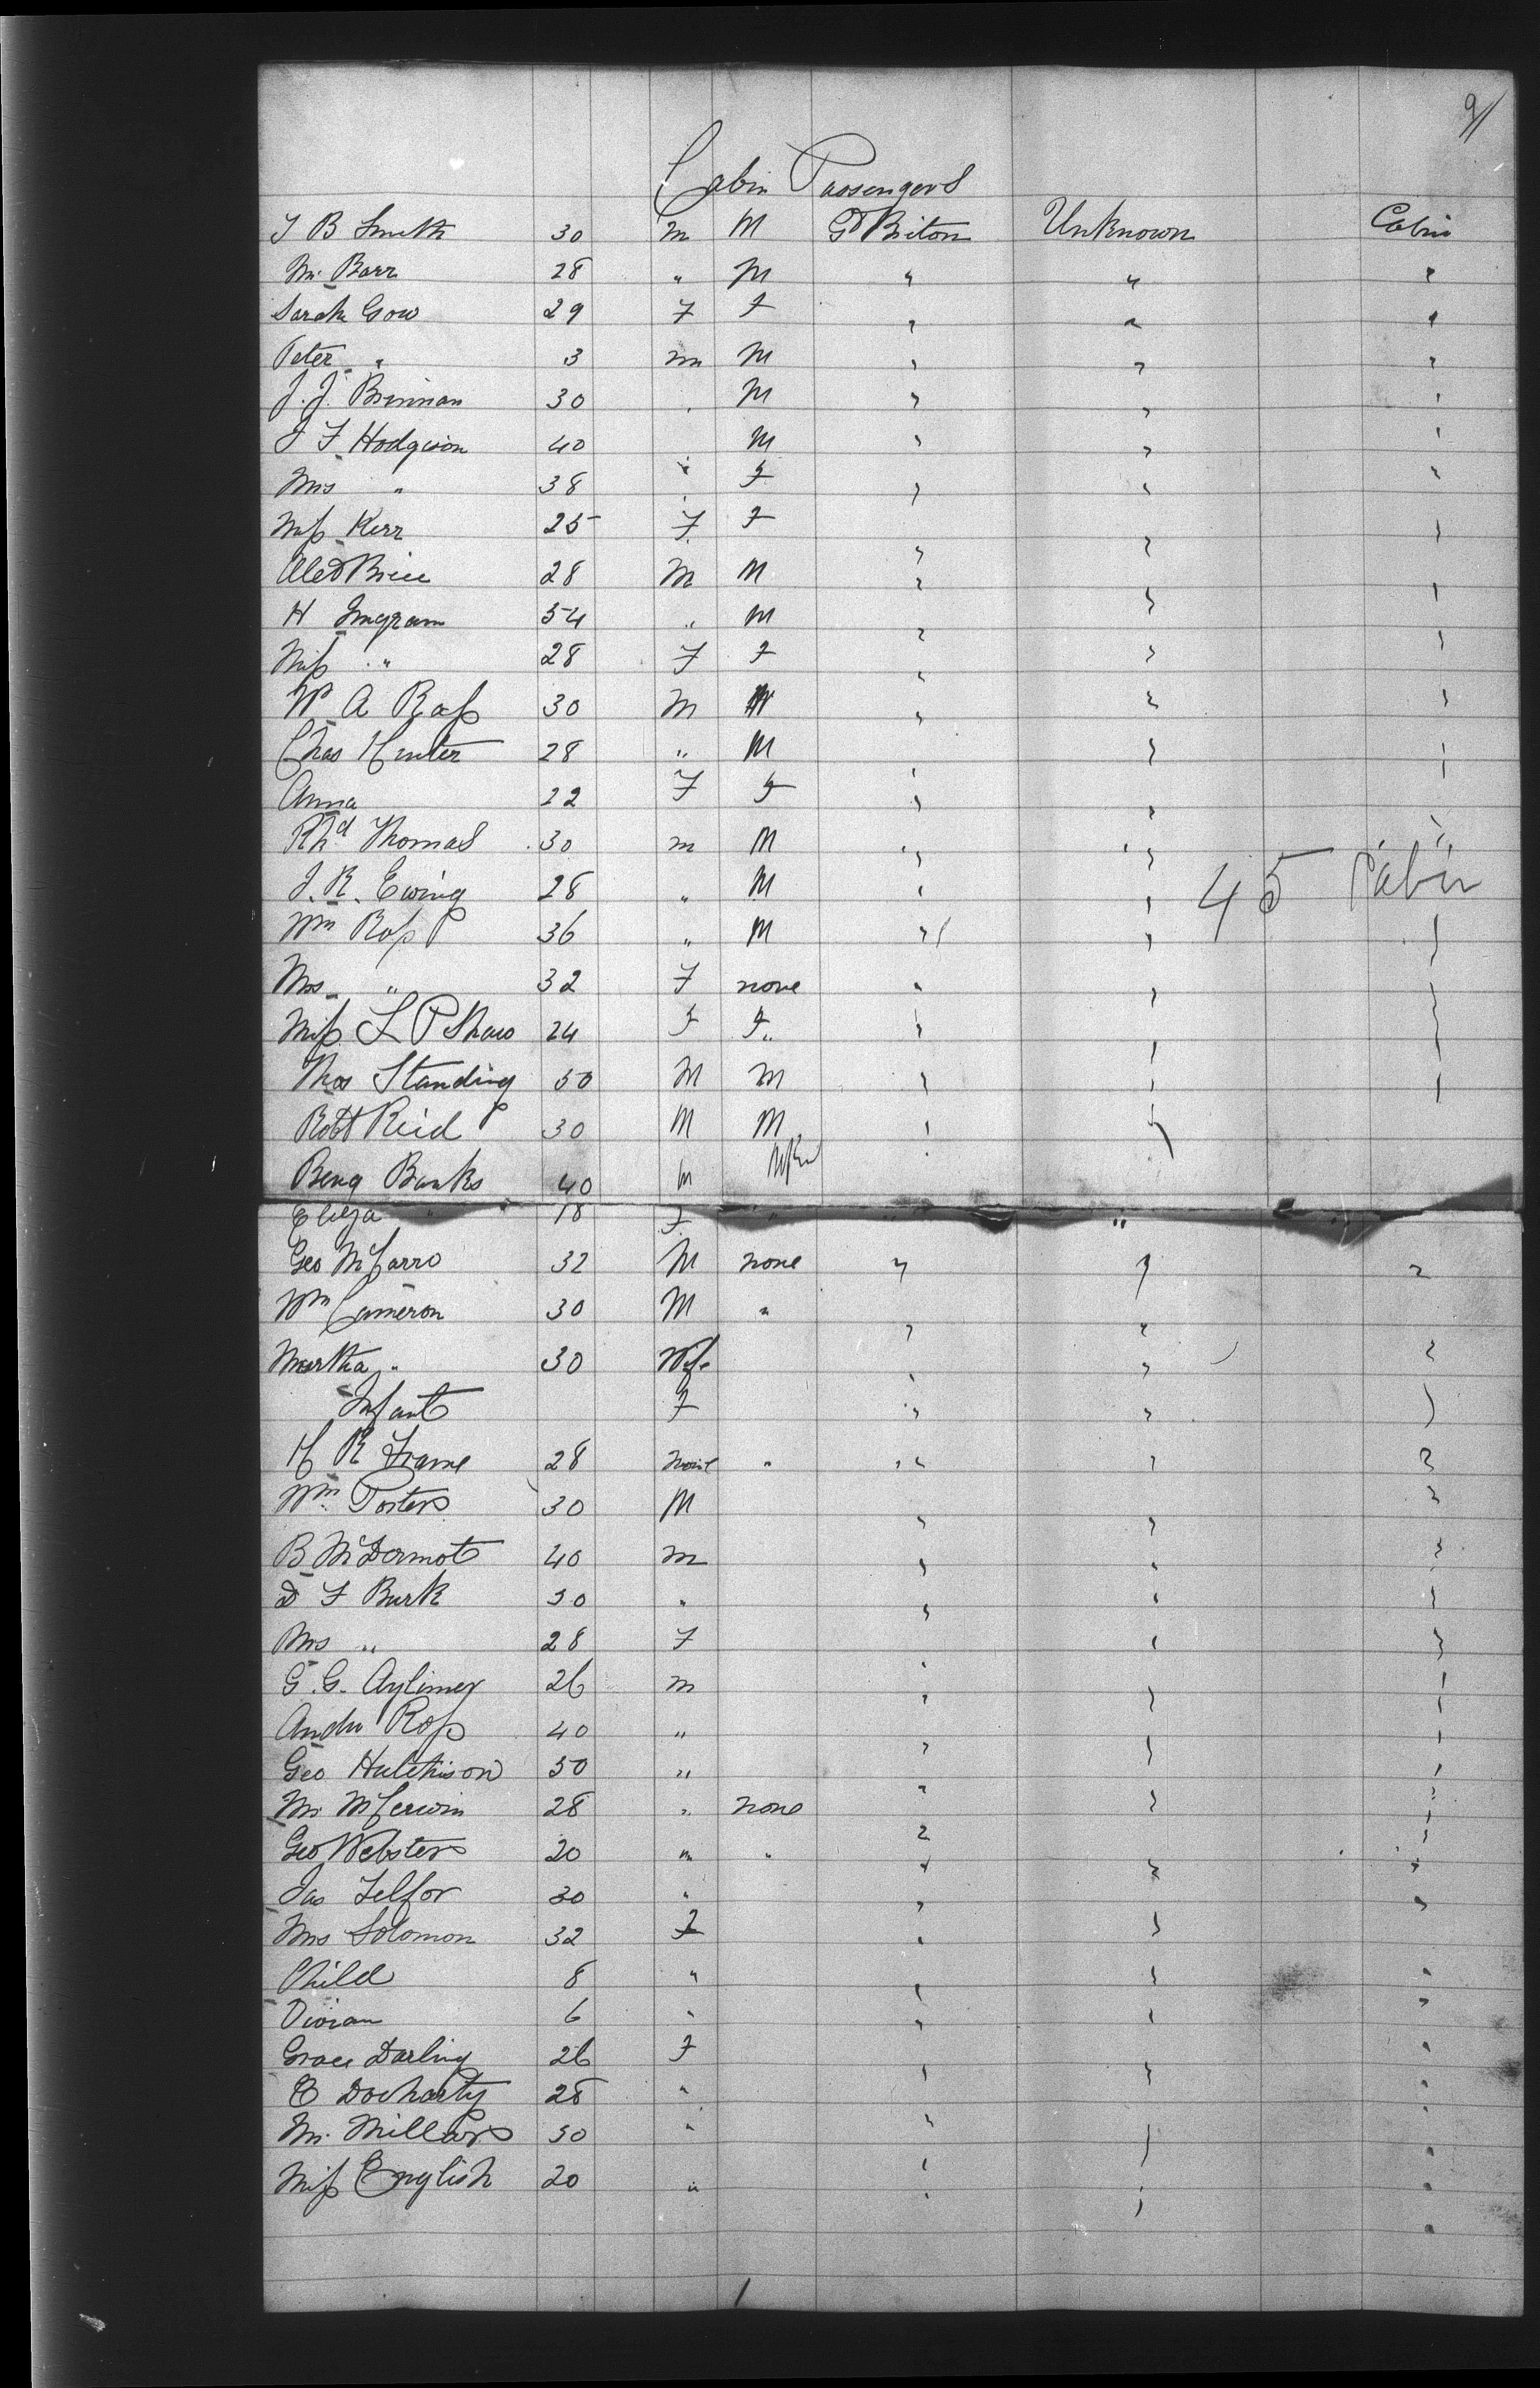 91
Cabin Passengers
J B Smith 30 m M Gt Briton Unknown Cabin
Mr. Barr 28 " M " " "
Sarah Gow 29 F F " " "
Peter " 3 m M " " "
J. J. Brinnan 30 " M " " "
J F Hodgson 40 M " " "
Mrs " 38 " F " " "
Miss Kerr 25 F F " " "
Alexr Brice 28 M M " " "
H Ingram 54 " M " " "
Miss " 28 F F " " "
Wm A Ross 30 M M " " "
Chas Hunter 28 " M " " "
Anna 22 F F " " "
Rhd Thomas 30 m M " " "
J. R. Ewing 28 " M " " 45 Cabin
Wm Ross 36 " M " " "
Mrs " 32 F none " " "
Miss L P Shaw 24 F F " " "
Thos Standing 50 M M " " "
Robt Reid 30 M M " "
Benj Banks 40 M
Eliza " 18 F " " "
Geo McCarro 32 M none " " "
Wm Cameron 30 M " " "
Martha " 30 Wife " " "
Infant F " " "
H R Frame 28 none " " " "
Wm Porter 30 M " " "
B McDermot 40 m " " "
D F Burk 30 " " " "
Mrs " 28 F " "
G. G. Aylimer 26 m " " "
Andw Ross 40 " " " "
Geo Hutchison 50 " " " "
Mr McCerwin 28 " none " " "
Geo Webster 20 m " " " "
Jas Telfor 30 " " "
Mrs Solomon 32 F " "
Child 8 " " " "
Vivian 6 " " " "
Grace Darling 26 F " " "
E Docharty 28 " " "
Mr. Millar 30 " " " "
Miss English 20 " " " "